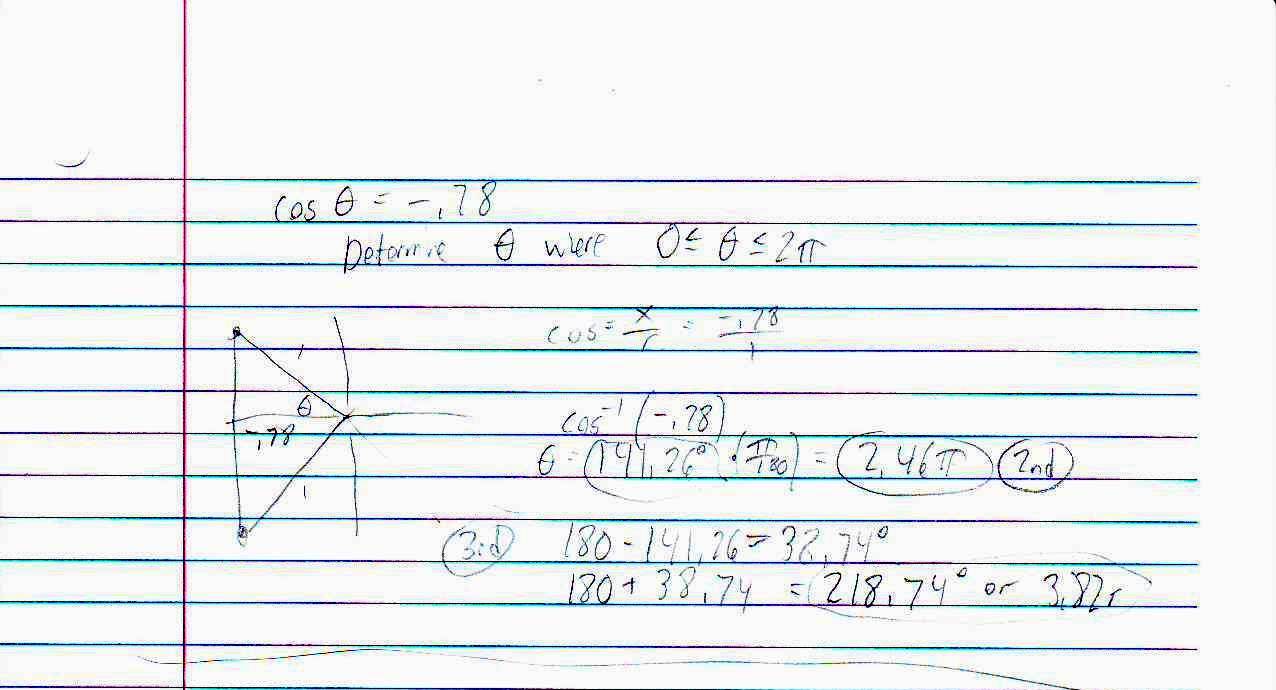 cos θ = -.78
Determine θ where 0 ≤ θ ≤ 2π
cos = x/r = -.78/1
1
θ
-.78
1
cos⁻¹(-.78)
θ = 141.26° · (π/180) = 2.46π 2nd
3rd 180 - 141.26 = 38.74°
180 + 38.74 = 218.74° or 3.82r